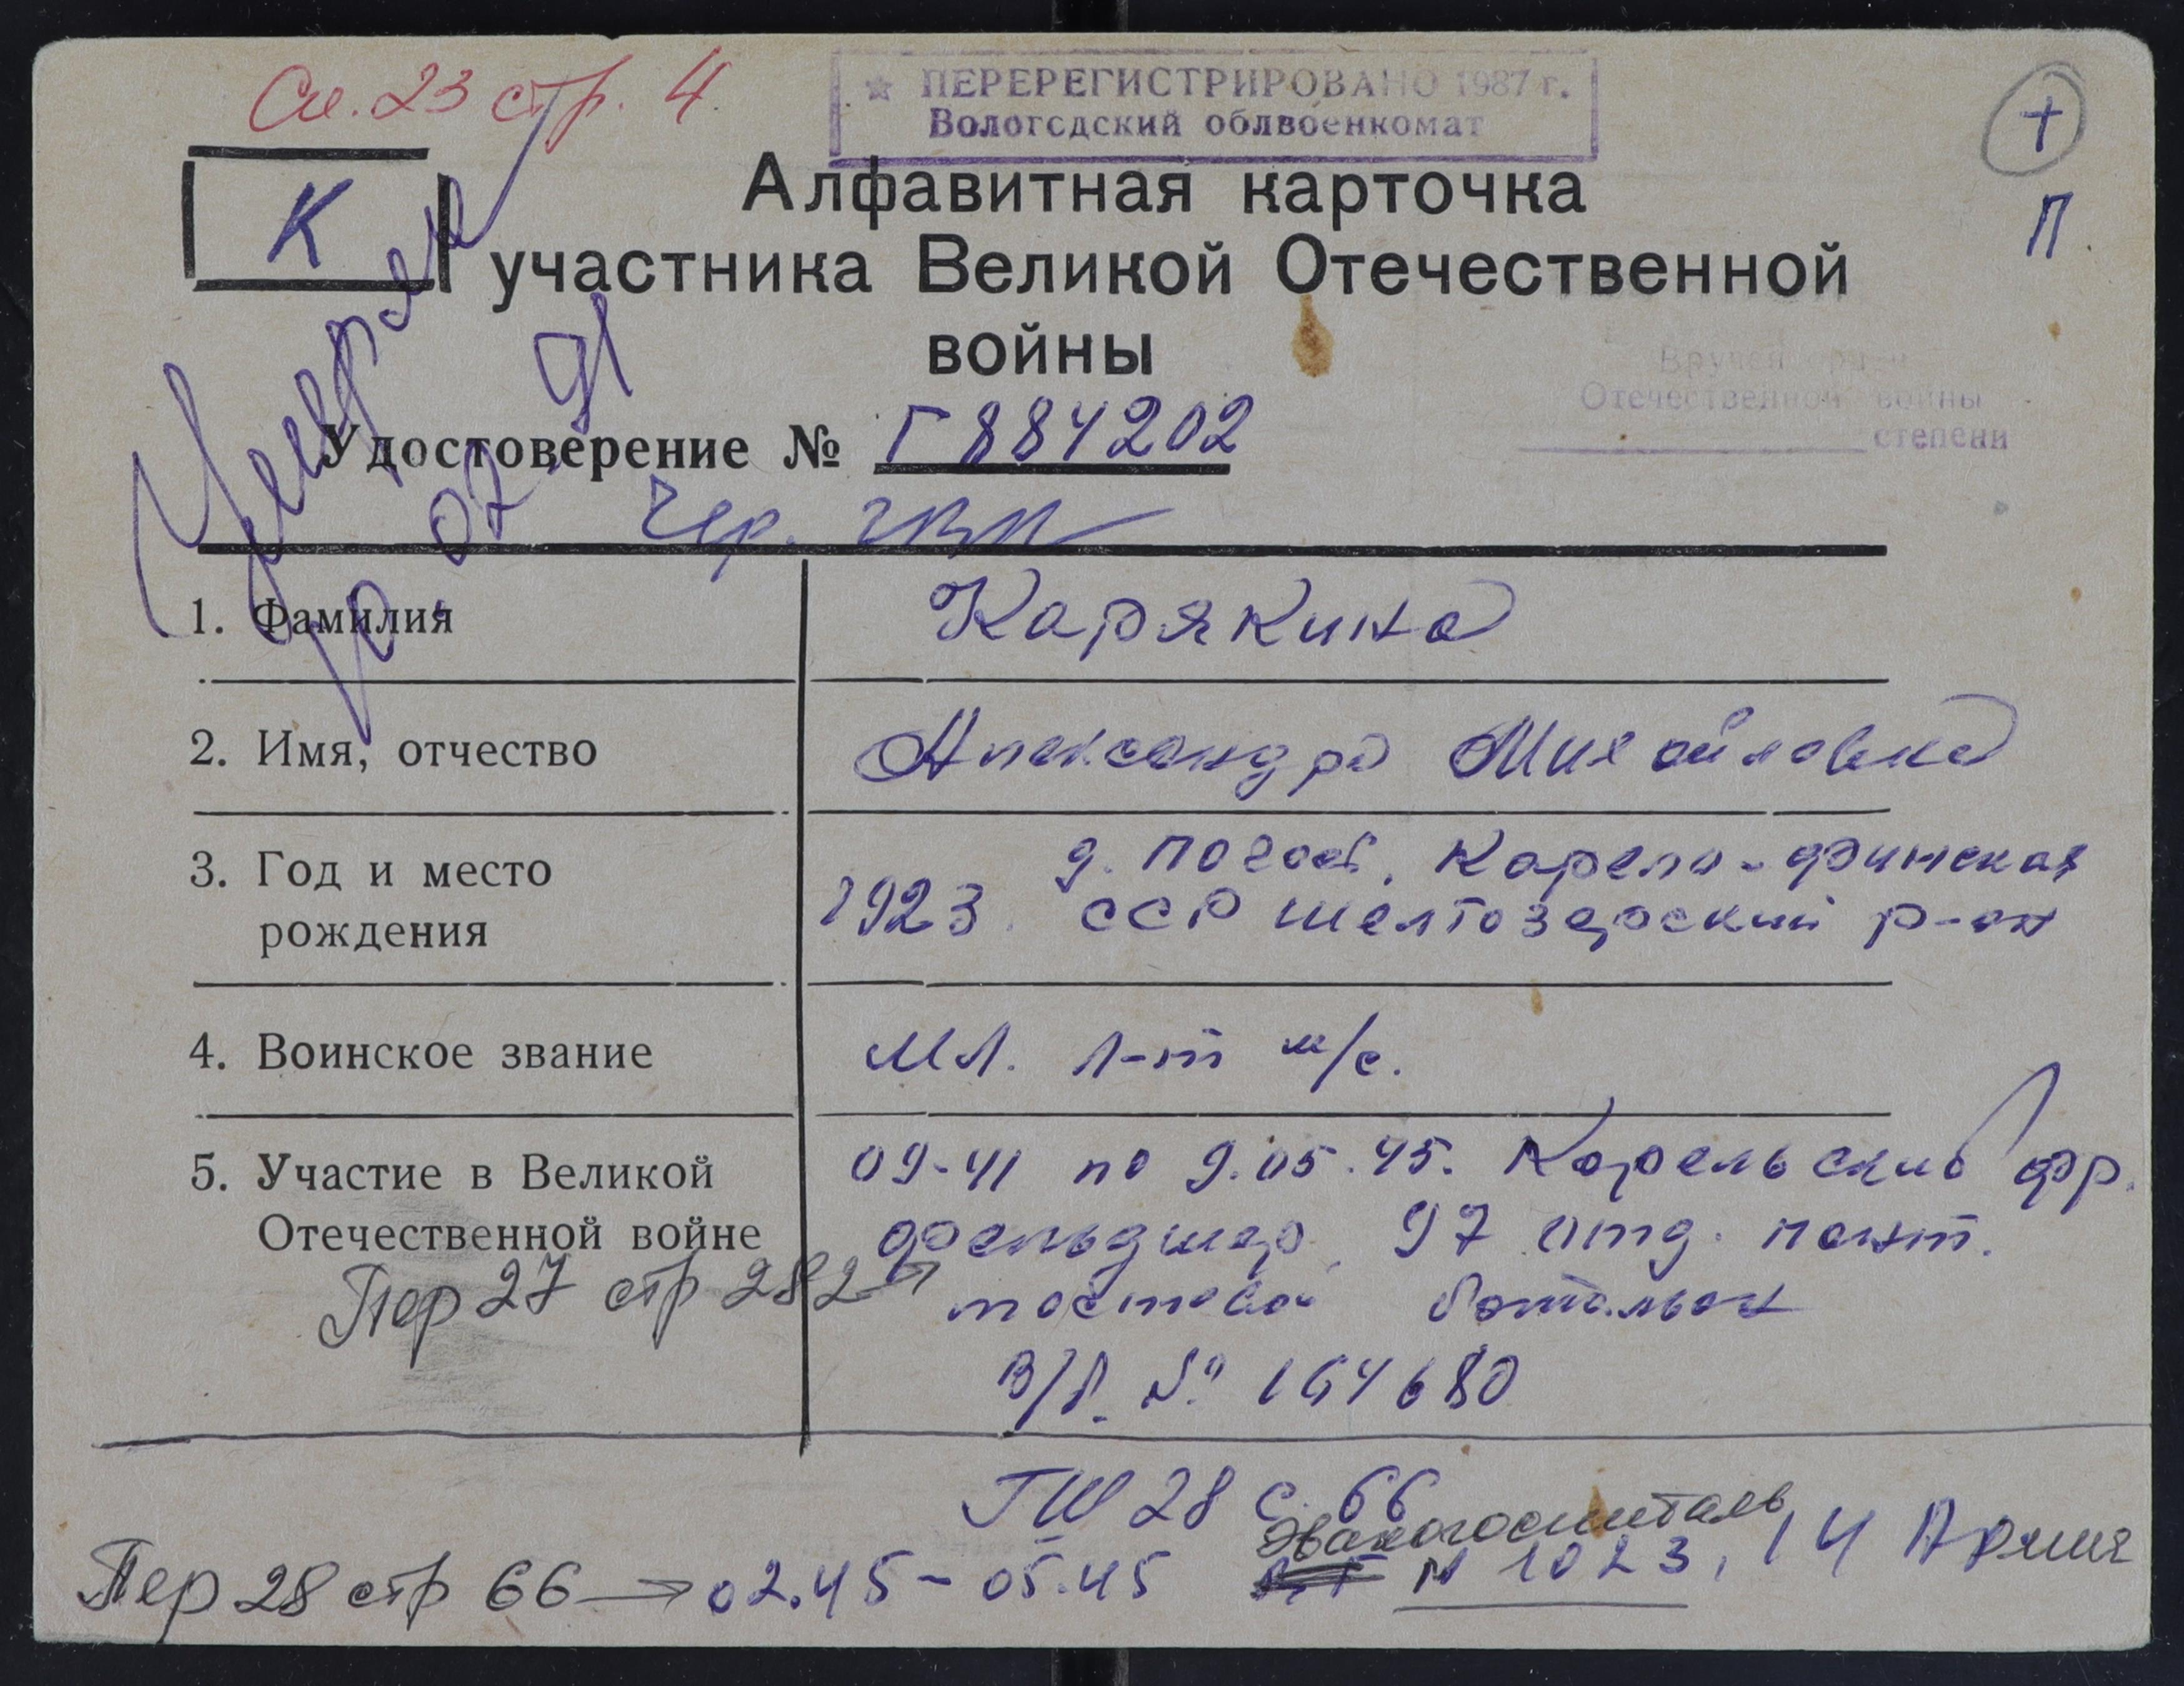 Сп. 23 стр. 4
ПЕРЕРЕГИСТРИРОВАНО 1987 г.
Вологодский облвоенкомат
+
К
П
Алфавитная карточка
участника Великой Отечественной
войны
Вручен орден
Отечественной войны
степени
Удостоверение № Г 884202
07. 91
Чер. ГВК
1. Фамилия Карякина
2. Имя, отчество Александра Михайловна
3. Год и место рождения 1923. д. Погост, Карело-финская
ССР Шелтозерский р-он
4. Воинское звание мл. л-т м/с.
5. Участие в Великой Отечественной войне 09-41 по 9.05.45. Карельский фр.
фельдшер, 97 отд. понт.
мостовой батальон
В/б. № 164680
Пер 27 стр 282 →
ГШ 28 с. 66
Эвакогоспиталь
Пер 28 стр 66 → 02.45 - 05.45 № 1023, 14 Армия